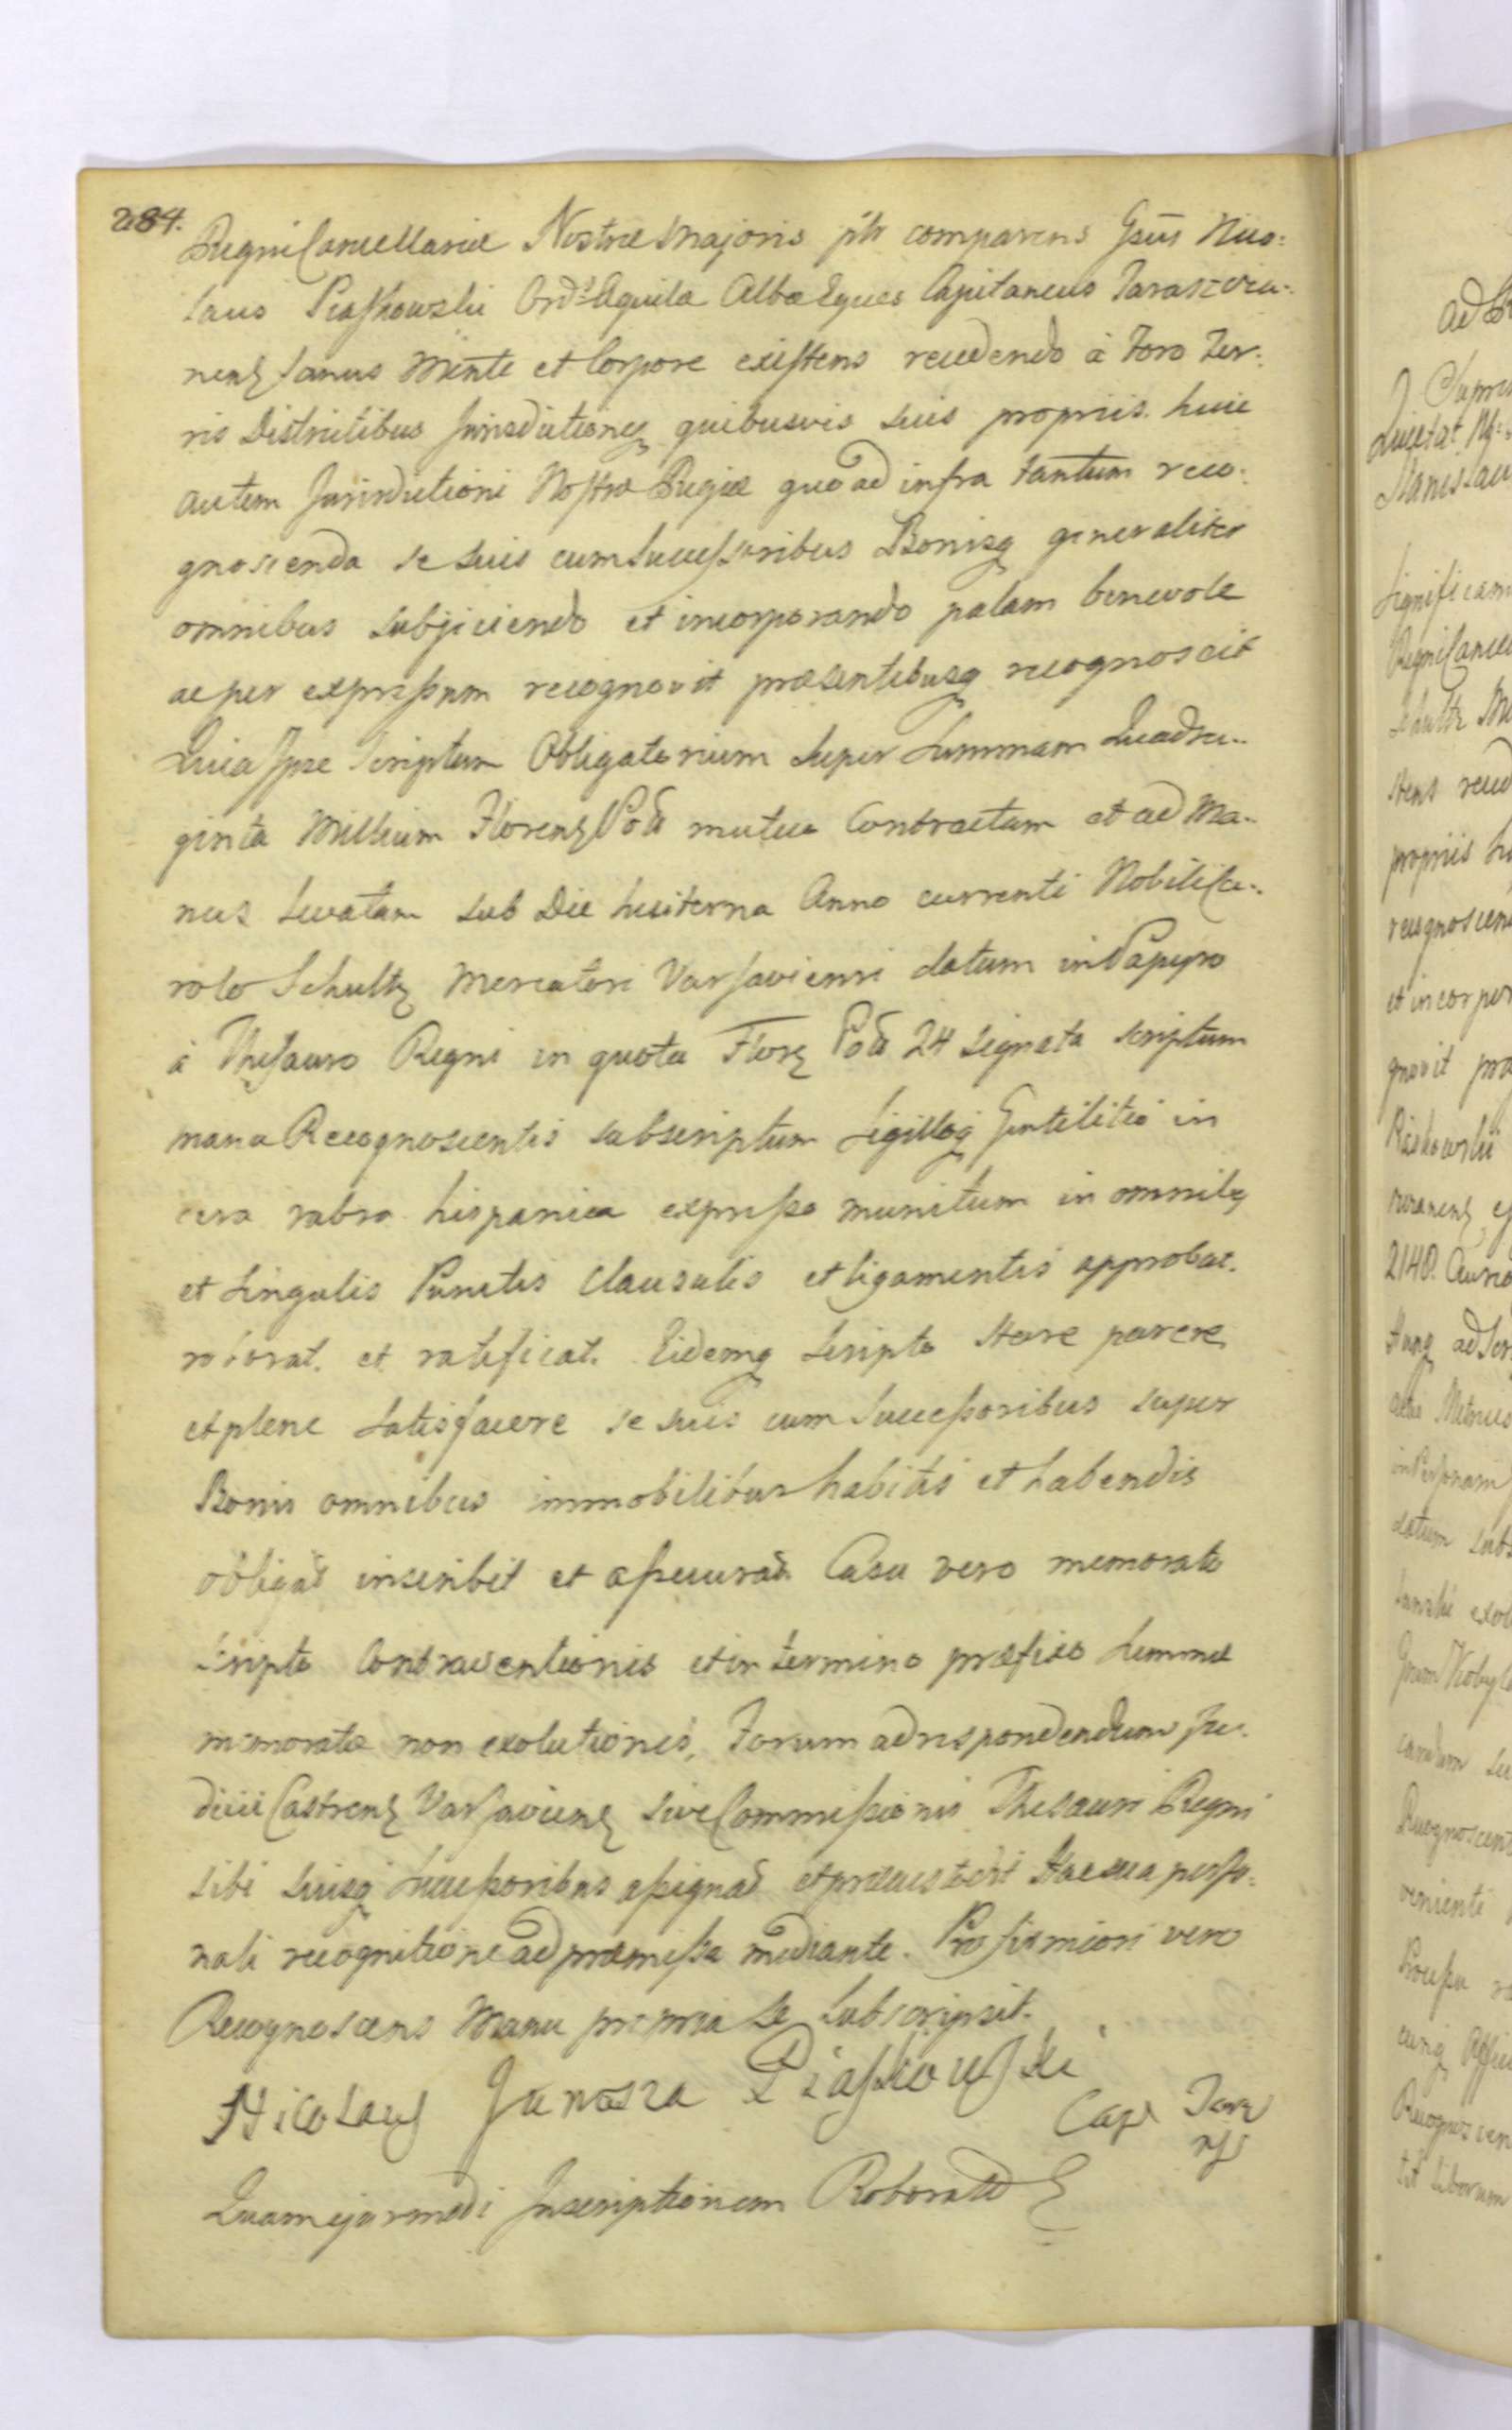 284.
Regni Cancellariæ Nostræ Majoris ptr comparens Gsūs Nico:
laus Piaskowski Ords Aquilæ Albæ Eques Capitaneus Taraszcza-
nenę sanus Mente et Corpore existens recedendo à Foro Ter:
ris Districtibus Jurisdictionęʒ quibusvis suis propriis huic
autem Jurisdictioni Nostræ Regiæ quo ad infra tantum reco:
gnoscenda se suis cum Successoribus Bonisq generaliter
omnibus subjiciendo et incorporando palam benevole
ac per expressum recognovit præsentibusq recognoscit
Quia Ipse Scriptum Obligatorium super Summam Quadra-
ginta Millium Florenę Pol mutuo Contractam et ad Ma-
nus Levatam sub Die hesterna Anno currenti Nobili Ca-
rolo Schultz Mercatori Varsaviensi datum in Papyro
à Thesauro Regni in quota Florę Pol 24 signata scriptum
manu Recognoscentis subscriptum Sigilloq Gentilitio in
cera rubra hispanica expresso munitum in omnibę
et singulis Punctis Clausulis et ligamentis approbat.
roborat. et ratificat. Eidemq Scripto stare parere
et plene satisfacere se suis cum Successoribus super
Bonis omnibus immobilibus habitis et habendis
obligat inscribit et assecurat. Casu vero memorato
Scripto Contraventionis et in termino præfixo Summæ
memoratæ non exolutionis, Forum ad respondendum Ju-
dicii Castrenę Varsavienę sive Commissionis Thesauri Regni
sibi suisq Successoribus assignat et præcustodit Hac sua perso-
nali recognitione ad præmissa mediante. Pro firmiori vero
Recognoscens Manu propria se subscripsit.
Nicolaus Junosza Piaskowski
Cap Tar
mp
Quam ejusmodi Inscriptionem Roborato
ad
Supre
Stanislau
significam
Regni Cancel
Schultz
propriis hu
recognoscen
et incorpor
gnovit præ
Piaskowski
2140.
datum subs
Recognoscent
venienti
Recognoscen